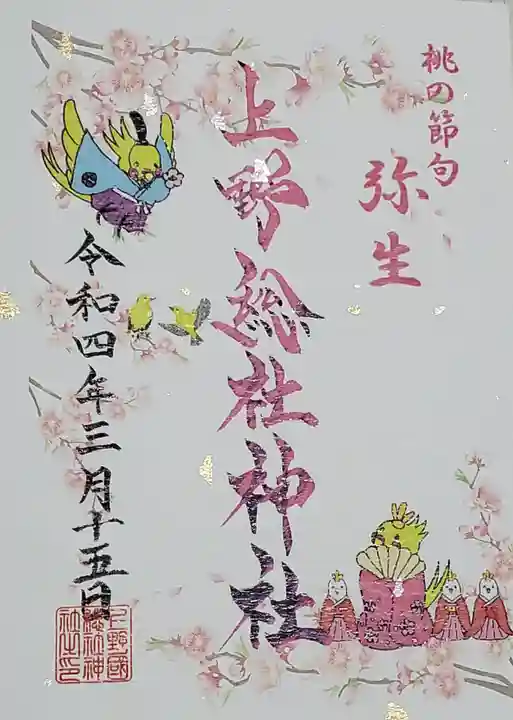 桃の節句
弥生
上野総社神社
令和四年三月十五日
上野國
総社神
社之印